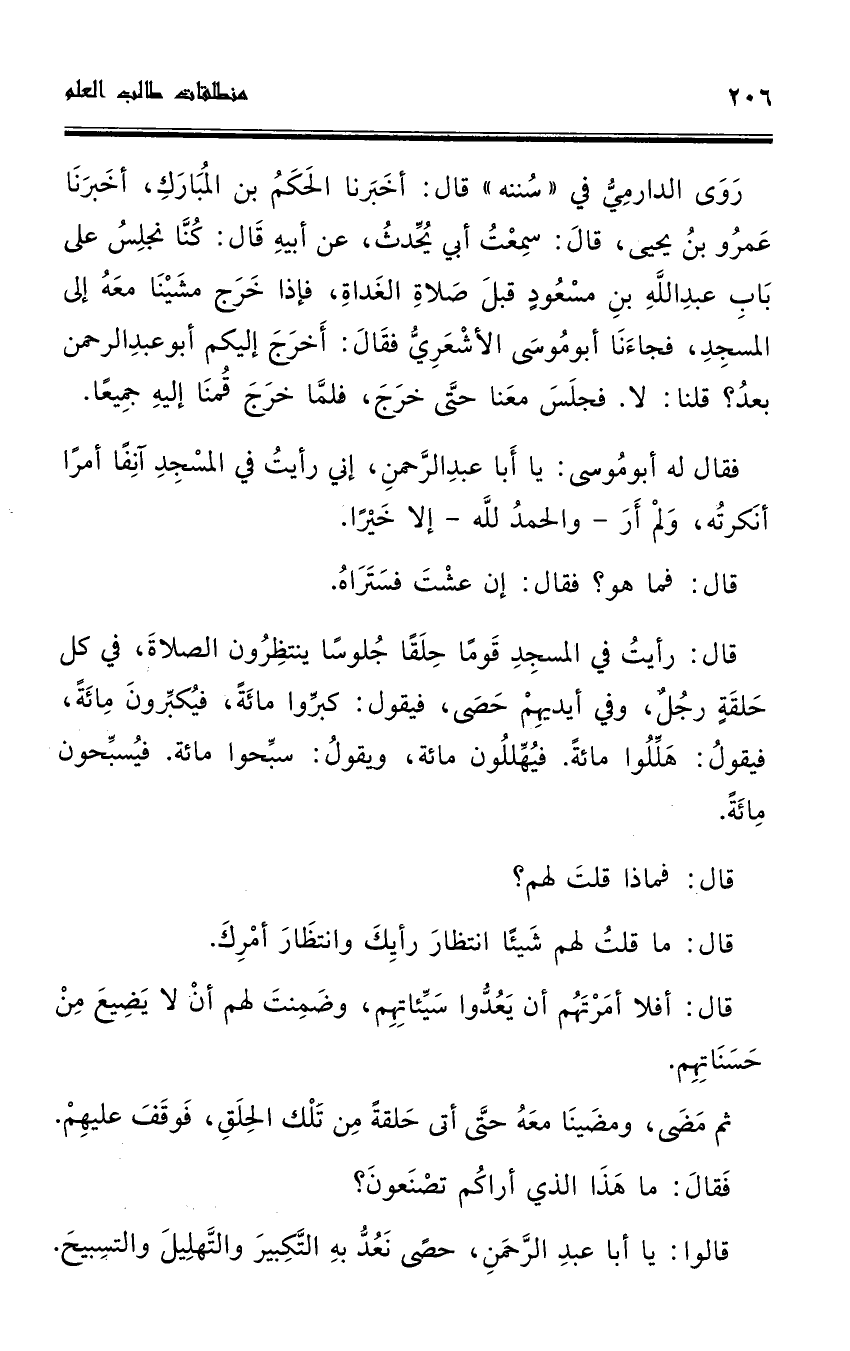 ٢٠٦ منطلقات طالب العلم
رَوَى الدارميُّ في «سُننه» قال: أخبَرنا الحَكَمُ بن المُبَارَكِ، أخبَرَنَا
عَمرُو بنُ يحيى، قالَ: سمِعْتُ أبي يُحِّدثُ، عن أبيهِ قَال: كُنَّا نجلِسُ على
بَابِ عبدِاللَّهِ بنِ مسْعُودٍ قبلَ صَلاةِ الغَداةِ، فإذا خَرَج مشَيْنَا معَهُ إلى
المسجدِ، فجاءَنَا أبومُوسَى الأشْعَرِيُّ فقَالَ: أَخرَجَ إليكم أبوعبدِالرحمن
بعدُ؟ قلنا: لا. فجلَسَ معَنا حتَّى خرَجَ، فلمَّا خرَجَ قُمنَا إليهِ جمِيعًا.
فقال له أبومُوسى: يا أَبا عبدِالرَّحمنِ، إني رأيتُ في المسْجِدِ آنِفًا أمرًا
أنَكرتُه، وَلمْ أَرَ - والحمدُ للَّه - إلا خَيْرًا.
قال: فما هو؟ فقال: إن عشْتَ فسَتَرَاهُ.
قال: رأيتُ في المسجِدِ قَومًا حِلَقًا جُلوسًا ينتظِرُون الصلاةَ، في كل
حَلقَةٍ رجُلٌ، وفي أيديهِمْ حَصَى، فيقول: كبرِّوا مائَةً، فيُكبِّرونَ مِائَةً،
فيقولُ: هَلِّلُوا مائةً. فيُهِّللُون مائة، ويقولُ: سبِّحوا مائة. فيُسبِّحون
مِائَةً.
قال: فماذا قلتَ لهم؟
قال: ما قلتُ لهم شَيئًا انتظارَ رأيِكَ وانتظَارَ أمْرِكَ.
قال: أفلا أمَرْتَهُم أن يَعُدُّوا سَيِّئاتِهِم، وضَمِنتَ لهم أنْ لا يَضِيعَ مِنْ
حَسَنَاتِهِم.
ثم مَضَى، ومضَينَا معَهُ حتَّى أتى حَلقةً مِن تَلْك الحِلَقِ، فَوقَفَ عليهِمْ.
فَقالَ: ما هَذَا الذي أراكُم تصْنَعونَ؟
قالوا: يا أبا عبدِ الرَّحمَنِ، حصًى نَعُدُّ بهِ التَّكبِيرَ والتَّهلِيلَ والتسبِيحَ.